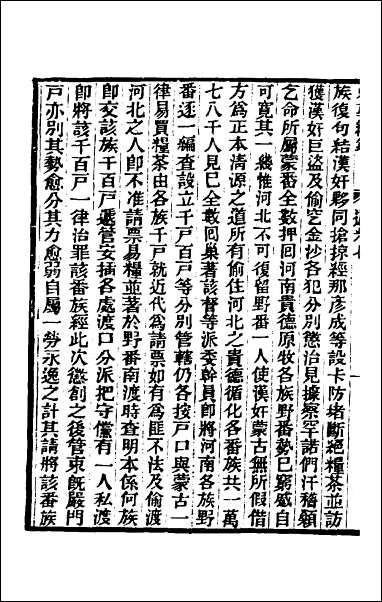 族復句結漢奸夥同搶掠經那彦成等設卡防堵斷絕糧茶並訪
獲漢奸巨盜及偷窆金沙各犯分別懲治見據察罕諾們汗稽顙
乞命所屬蒙番全數押回河南貴德原牧各族野番勢已窮蹙自
可寬其一綫惟河北不可復留野番一人使漢奸蒙古無所假借
方為正本清源之道所有偷住河北之貴德循化各番族共一萬
七八千人見巳全數囘巢著該督等派委幹員即將河南各族野
番逐一編查設立千戸百戸等分別管轄仍各按戸口與蒙古一
律易買糧茶由各族千戸就近代為請票如有為匪不法及偷渡
河北之人卽不准請票易糧並著於野番南渡時查明本係何族
卽交該族千百戸遞管安插各處渡口分派把守儻有一人私渡
卽將該千百戸一律治罪該番族經此次懲創之後管束旣嚴門
戸亦別其勢愈分其力愈弱自屬一勞永逸之計其請將該番族